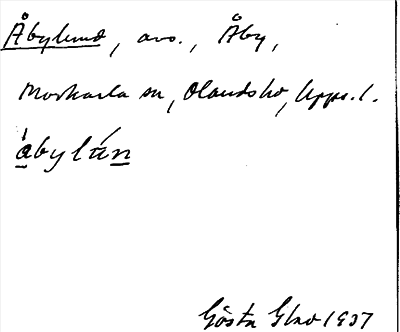 Åbylund, avs., Åby,
Morkarla sn, Olandshd, Upps. l.
åbylún
Gösta Glad 1937